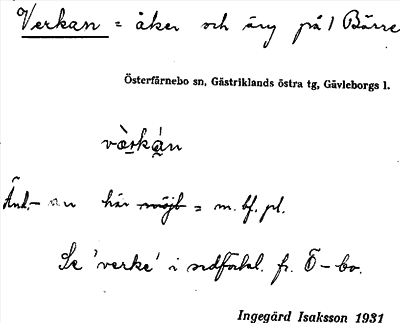 Verkan = åker och äng på 1 Bärre
Österfärnebo sn, Gästriklands östra tg, Gävleborgs l.
vӕ̀rkán
Änd.- an här möjl = m. bf. pl.
Se 'verke' i ordförtel. fr. Ö-bo.
Ingegärd Isaksson 1931